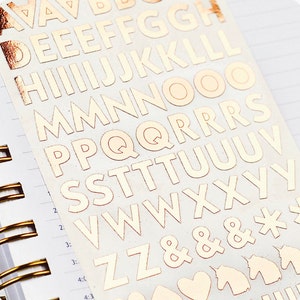 AAABBB
DEEEFFGG
HIIIIJJKKLLL
MMNNNOOO
PPQQQRRRS
SSTTTUUUUV
VWWXXYY
ZZ&&&*